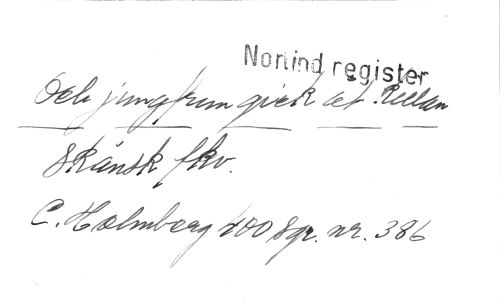 Norlind register
Och jungfrun gick åt källan
Skånsk fkv.
C. Holmberg 100 Sgr. nr. 386